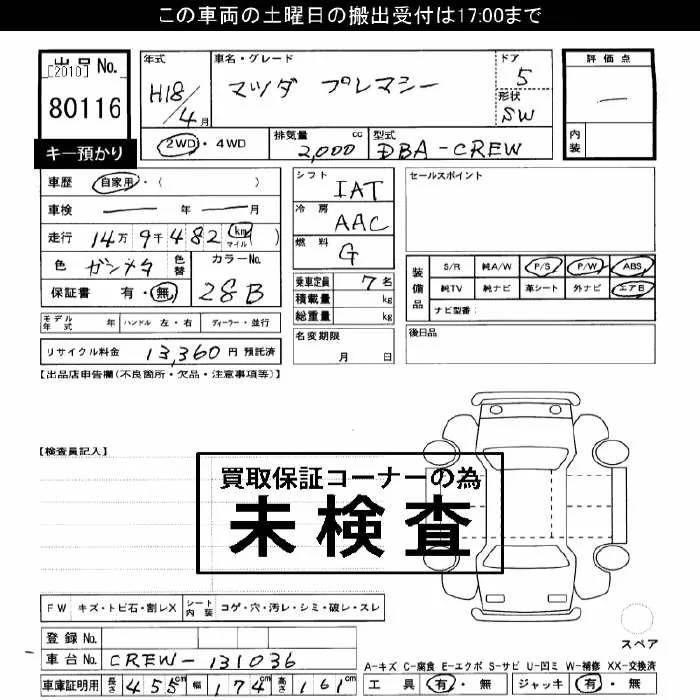 この車両の土曜日の搬出受付は17:00まで
出品 No.
[2010]
80116
キー預かり
年式
H18/4月
車名・グレード
マツダ プレマシー
ドア
5
形状
SW
評価点
―
内装
2WD・4WD
排気量 cc
2,000
型式
DBA-CREW
車歴 自家用・( )
車検 ― 年 ― 月
走行 14万9千482 (km マイル)
色 ガンメタ 色替
カラーNo.
28B
保証書 有・無
シフト
IAT
冷房
AAC
燃料
G
乗車定員 7名
積載量 kg
総重量 kg
名変期限
月 日
セールスポイント
装備品
S/R 純A/W P/S P/W ABS
純TV 純ナビ 革シート 外ナビ エアB
ナビ型番:
後日品
モデル年式 年 ハンドル 左・右 ディーラー・並行
リサイクル料金 13,360円 預託済
【出品店申告欄(不良箇所・欠品・注意事項等)】
【検査員記入】
買取保証コーナーの為
未検査
FW キズ・トビ石・割レX シート内装 コゲ・穴・汚レ・シミ・破レ・スレ
登録 No.
車台 No. CREW-131036
車庫証明用 長さ 455cm 幅 174cm 高さ 161cm
スペア
A-キズ C-腐食 E-エクボ S-サビ U-凹ミ W-補修 XX-交換済
工具 有・無 ジャッキ 有・無